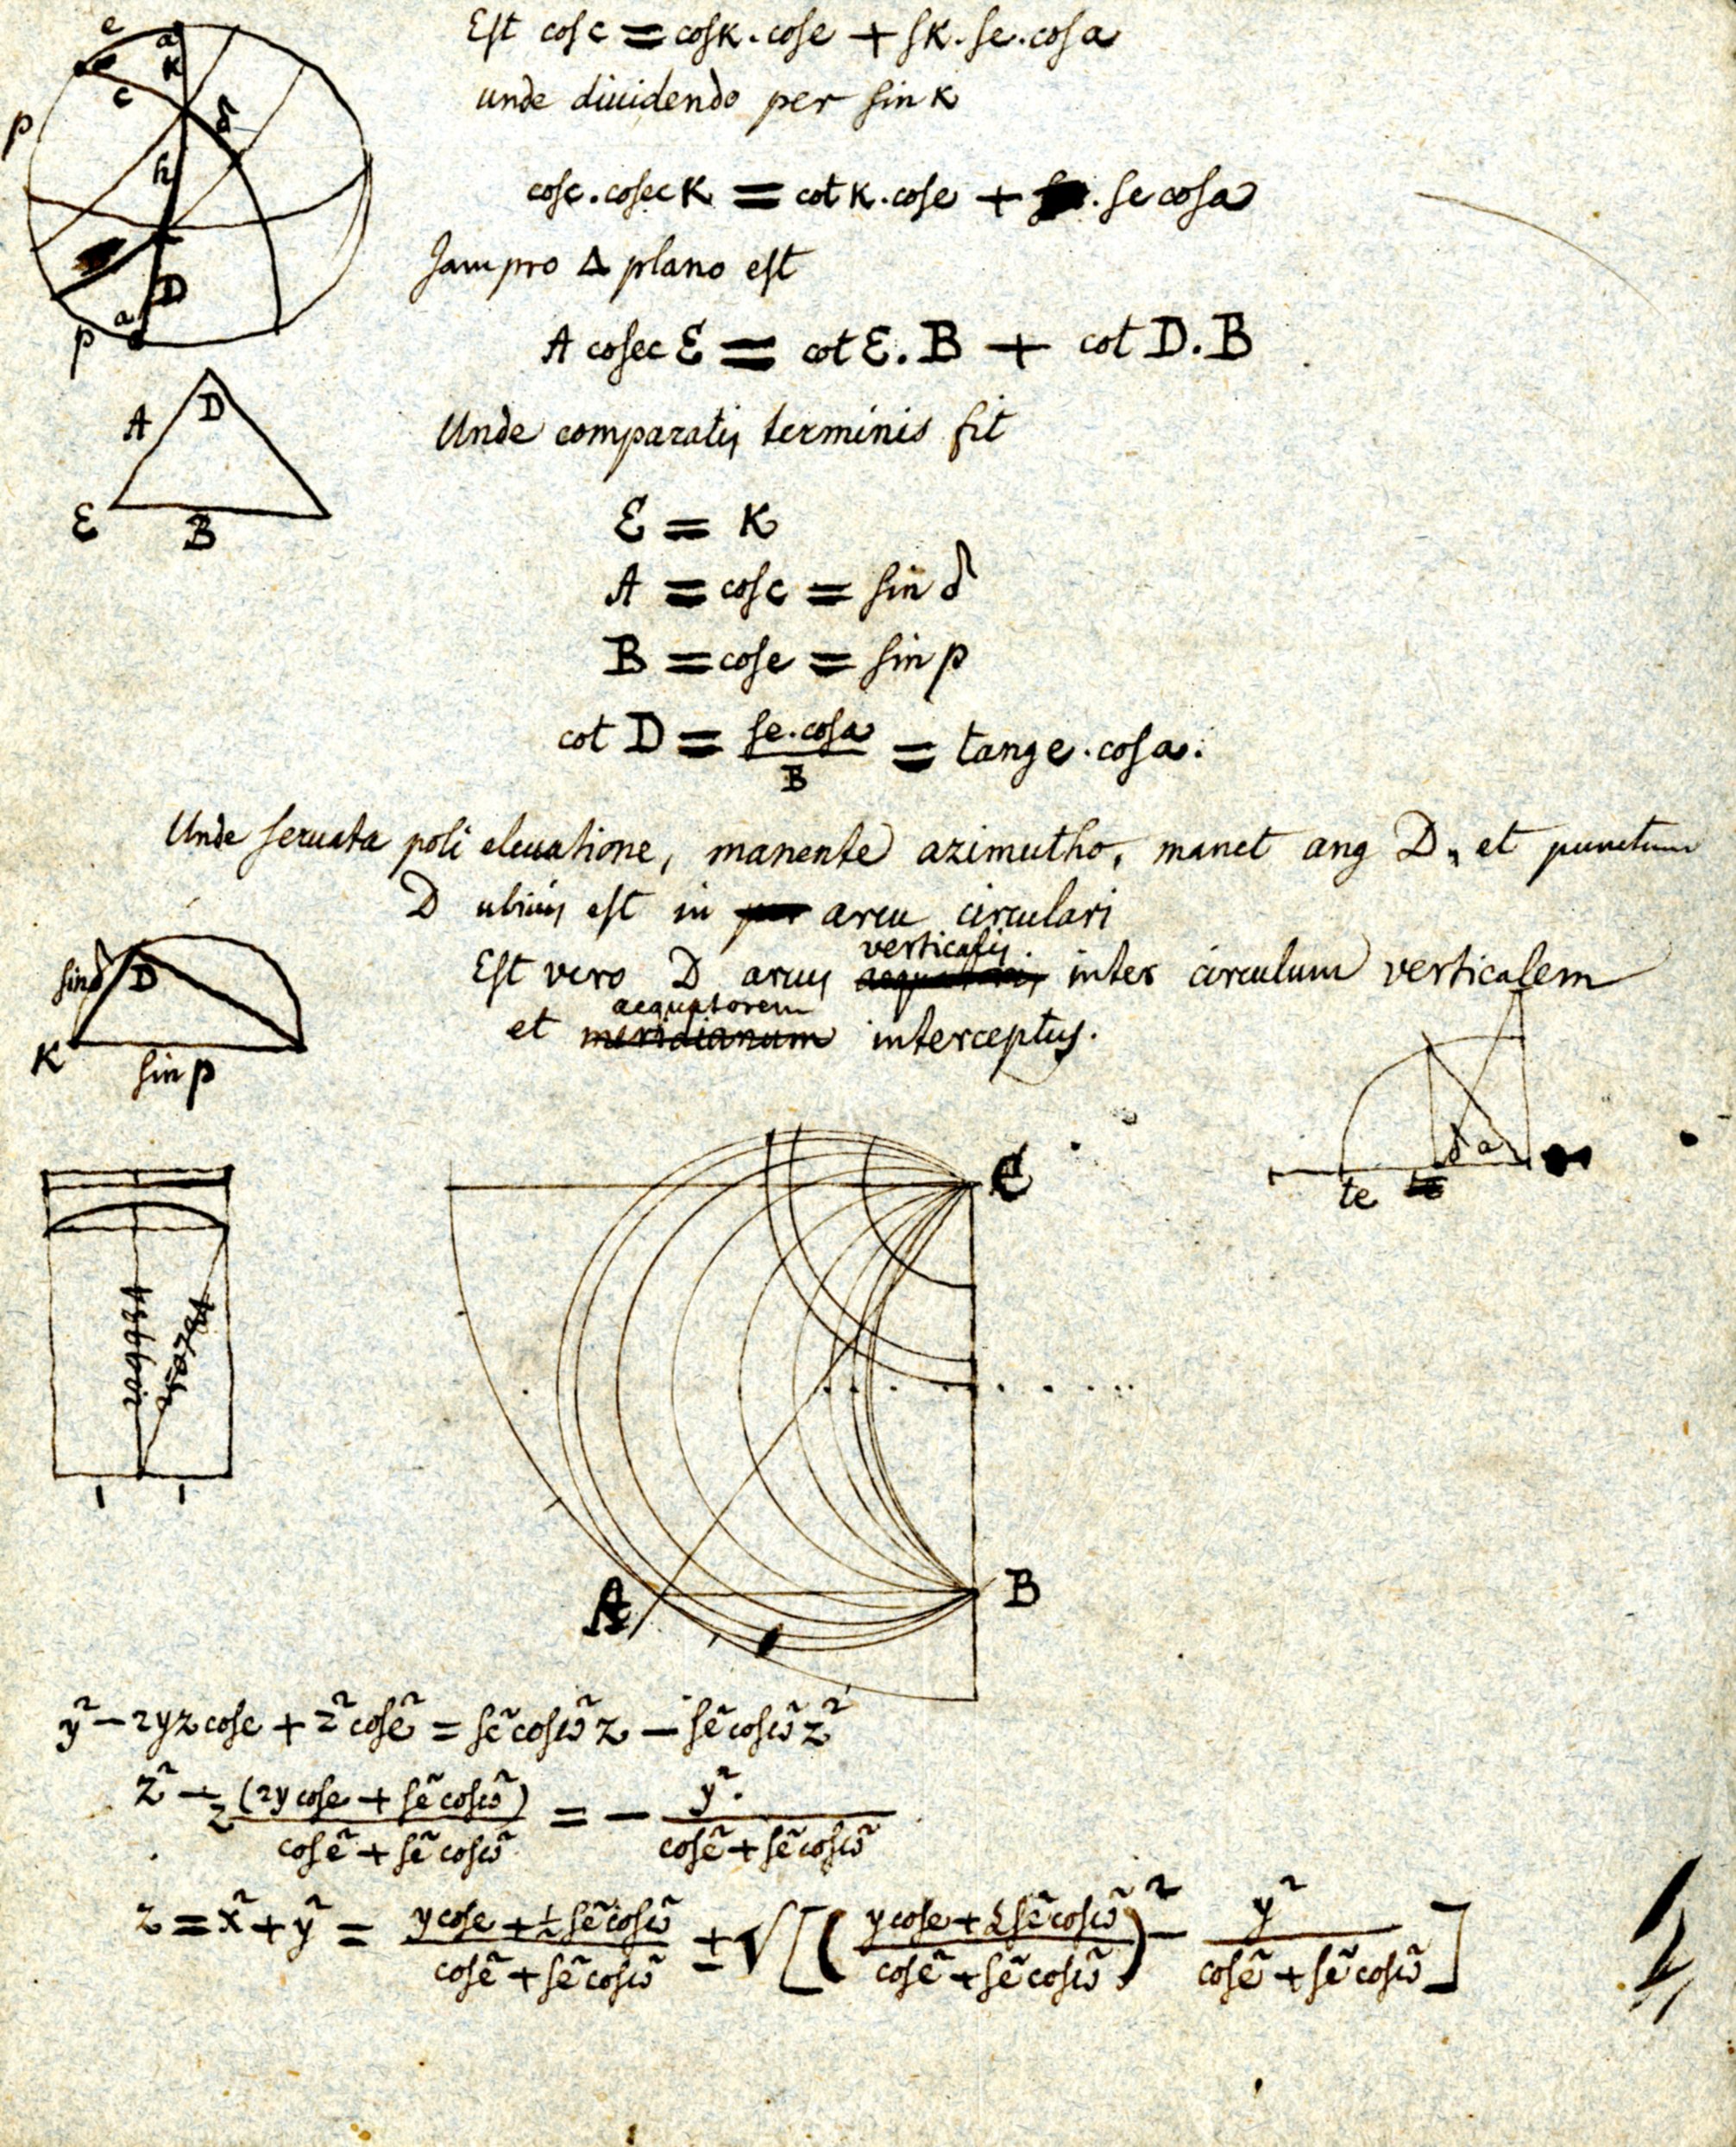 Est cos c = cos k. cos e + sk. se. cos a
unde diuidendo per sin k
cos c. cosec k = cot k. cos e + . se cos a
Jam pro Δ plano est
A cosec E = cot E. B + cot D. B
Unde comparatis terminis fit
E = k
A = cos c = sin δ
B = cos e = sin p
cot D = se. cos a / B = tang e. cos a.
Unde seruata poli eleuatione, manente azimutho, manet ang D, et punctum
D ubiuis est in arcu circulari
verticalis
Est vero D arcus inter circulum verticalem
aequatorem
et meridianum interceptus.
e
a
k
c
p
δ
h
D
a
p
A
D
E
B
sin δ
D
k
sin p
1
1
C
A
B
δ
a
te
y² – 2yz cos e + z² cos e² = se² cos ω² z – se² cos ω² z²
z² – z (2y cos e + se² cos ω²) / cos e² + se² cos ω² = – y² / cos e² + se² cos ω²
z = x² + y² = y cos e + ½ se² cos ω² / cos e² + se² cos ω² ± √[(y cos e + ½ se² cos ω² / cos e² + se² cos ω²)² – y² / cos e² + se² cos ω²]